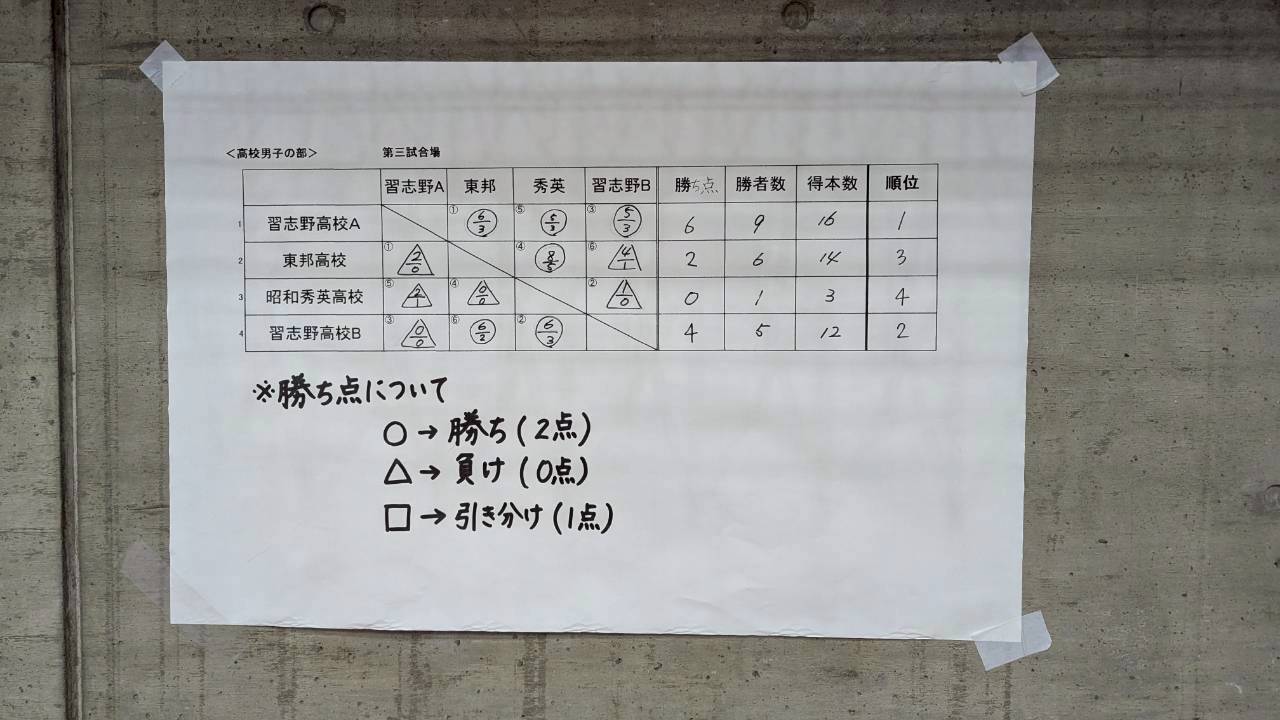 ＜高校男子の部＞ 第三試合場
習志野A 東邦 秀英 習志野B 勝ち点 勝者数 得本数 順位
1 習志野高校A ① 6/3 ⑤ 5/3 ③ 5/3 6 9 16 1
2 東邦高校 ① 2/0 ④ 8/5 ⑥ 4/1 2 6 14 3
3 昭和秀英高校 ⑤ 2/1 ④ 0/0 ② 1/0 0 1 3 4
4 習志野高校B ③ 0/0 ⑥ 6/2 ② 6/3 4 5 12 2
※勝ち点について
○→勝ち(2点)
△→負け(0点)
□→引き分け(1点)